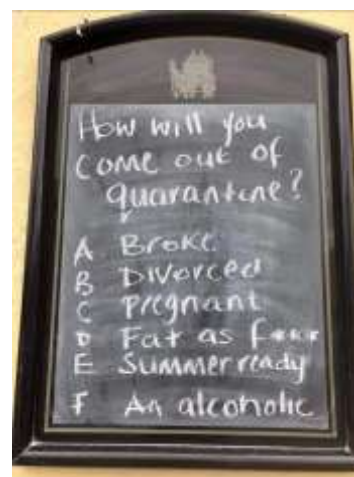 How will you
come out of
quarantine?
A Broke
B Divorced
C Pregnant
D Fat as f***
E Summer ready
F An alcoholic